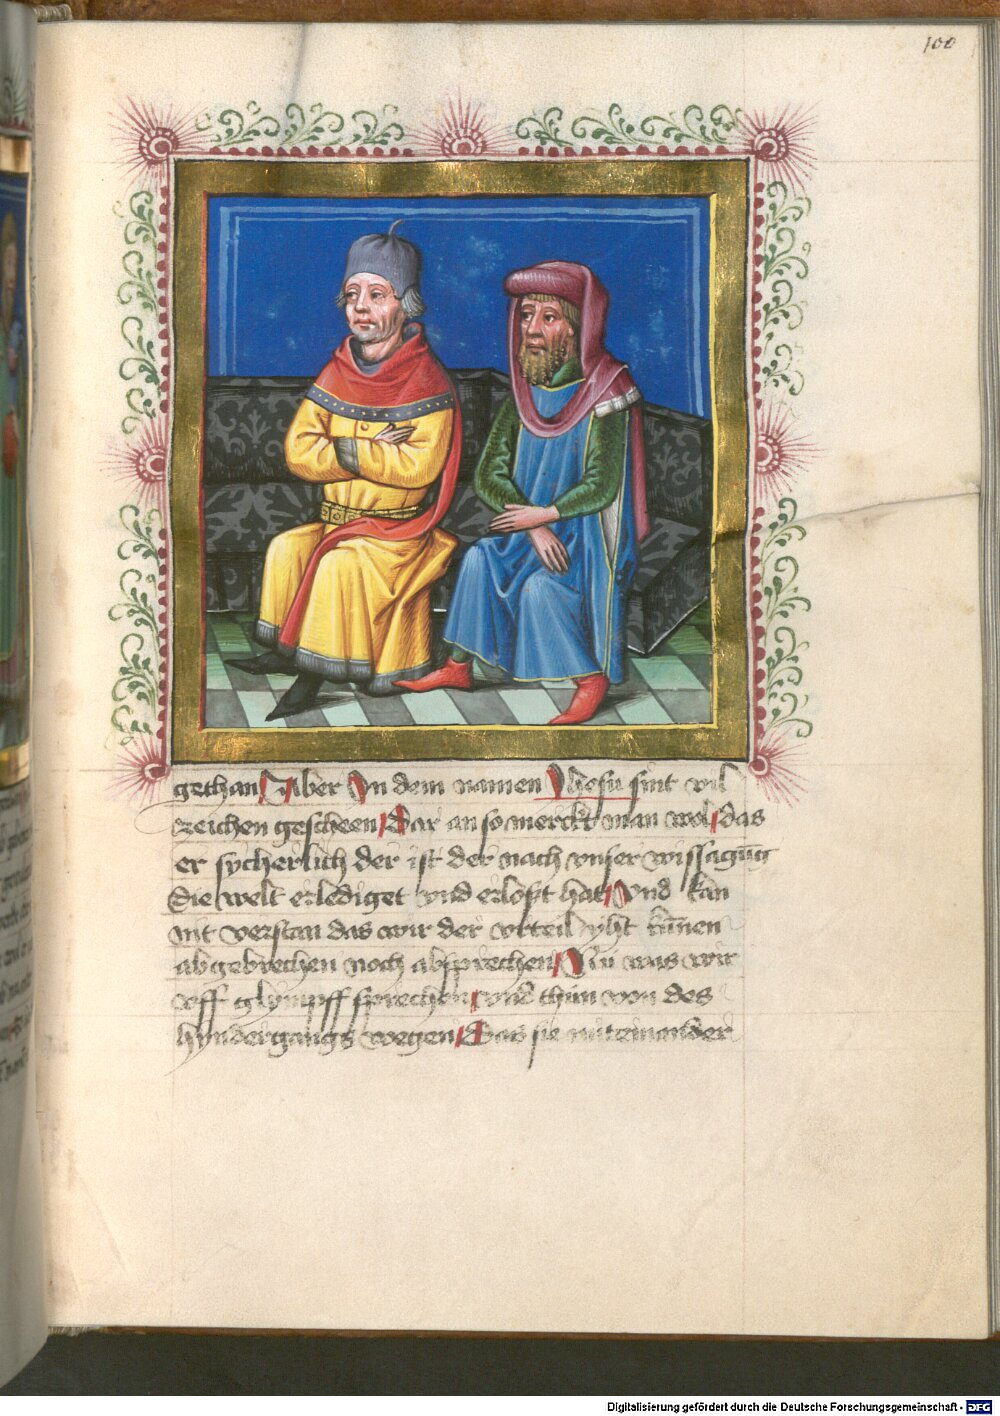 100
gethan / Aber In dem namen Jhesu sint vil
zeichen gescheen / Dar an so merckt man wol / das
er sycherlich der ist der nach vnser wissagũg
Die welt erlediget vnd erlost hat / Vnd kan
nit verstan das wir der vrteil yht kũnen
abgebrechen noch absprechen / Nũ was wir
vff glympff sprechen / vnd thun von des
hyndergangs wegen / Das sie miteinander
Digitalisierung gefördert durch die Deutsche Forschungsgemeinschaft - DFG